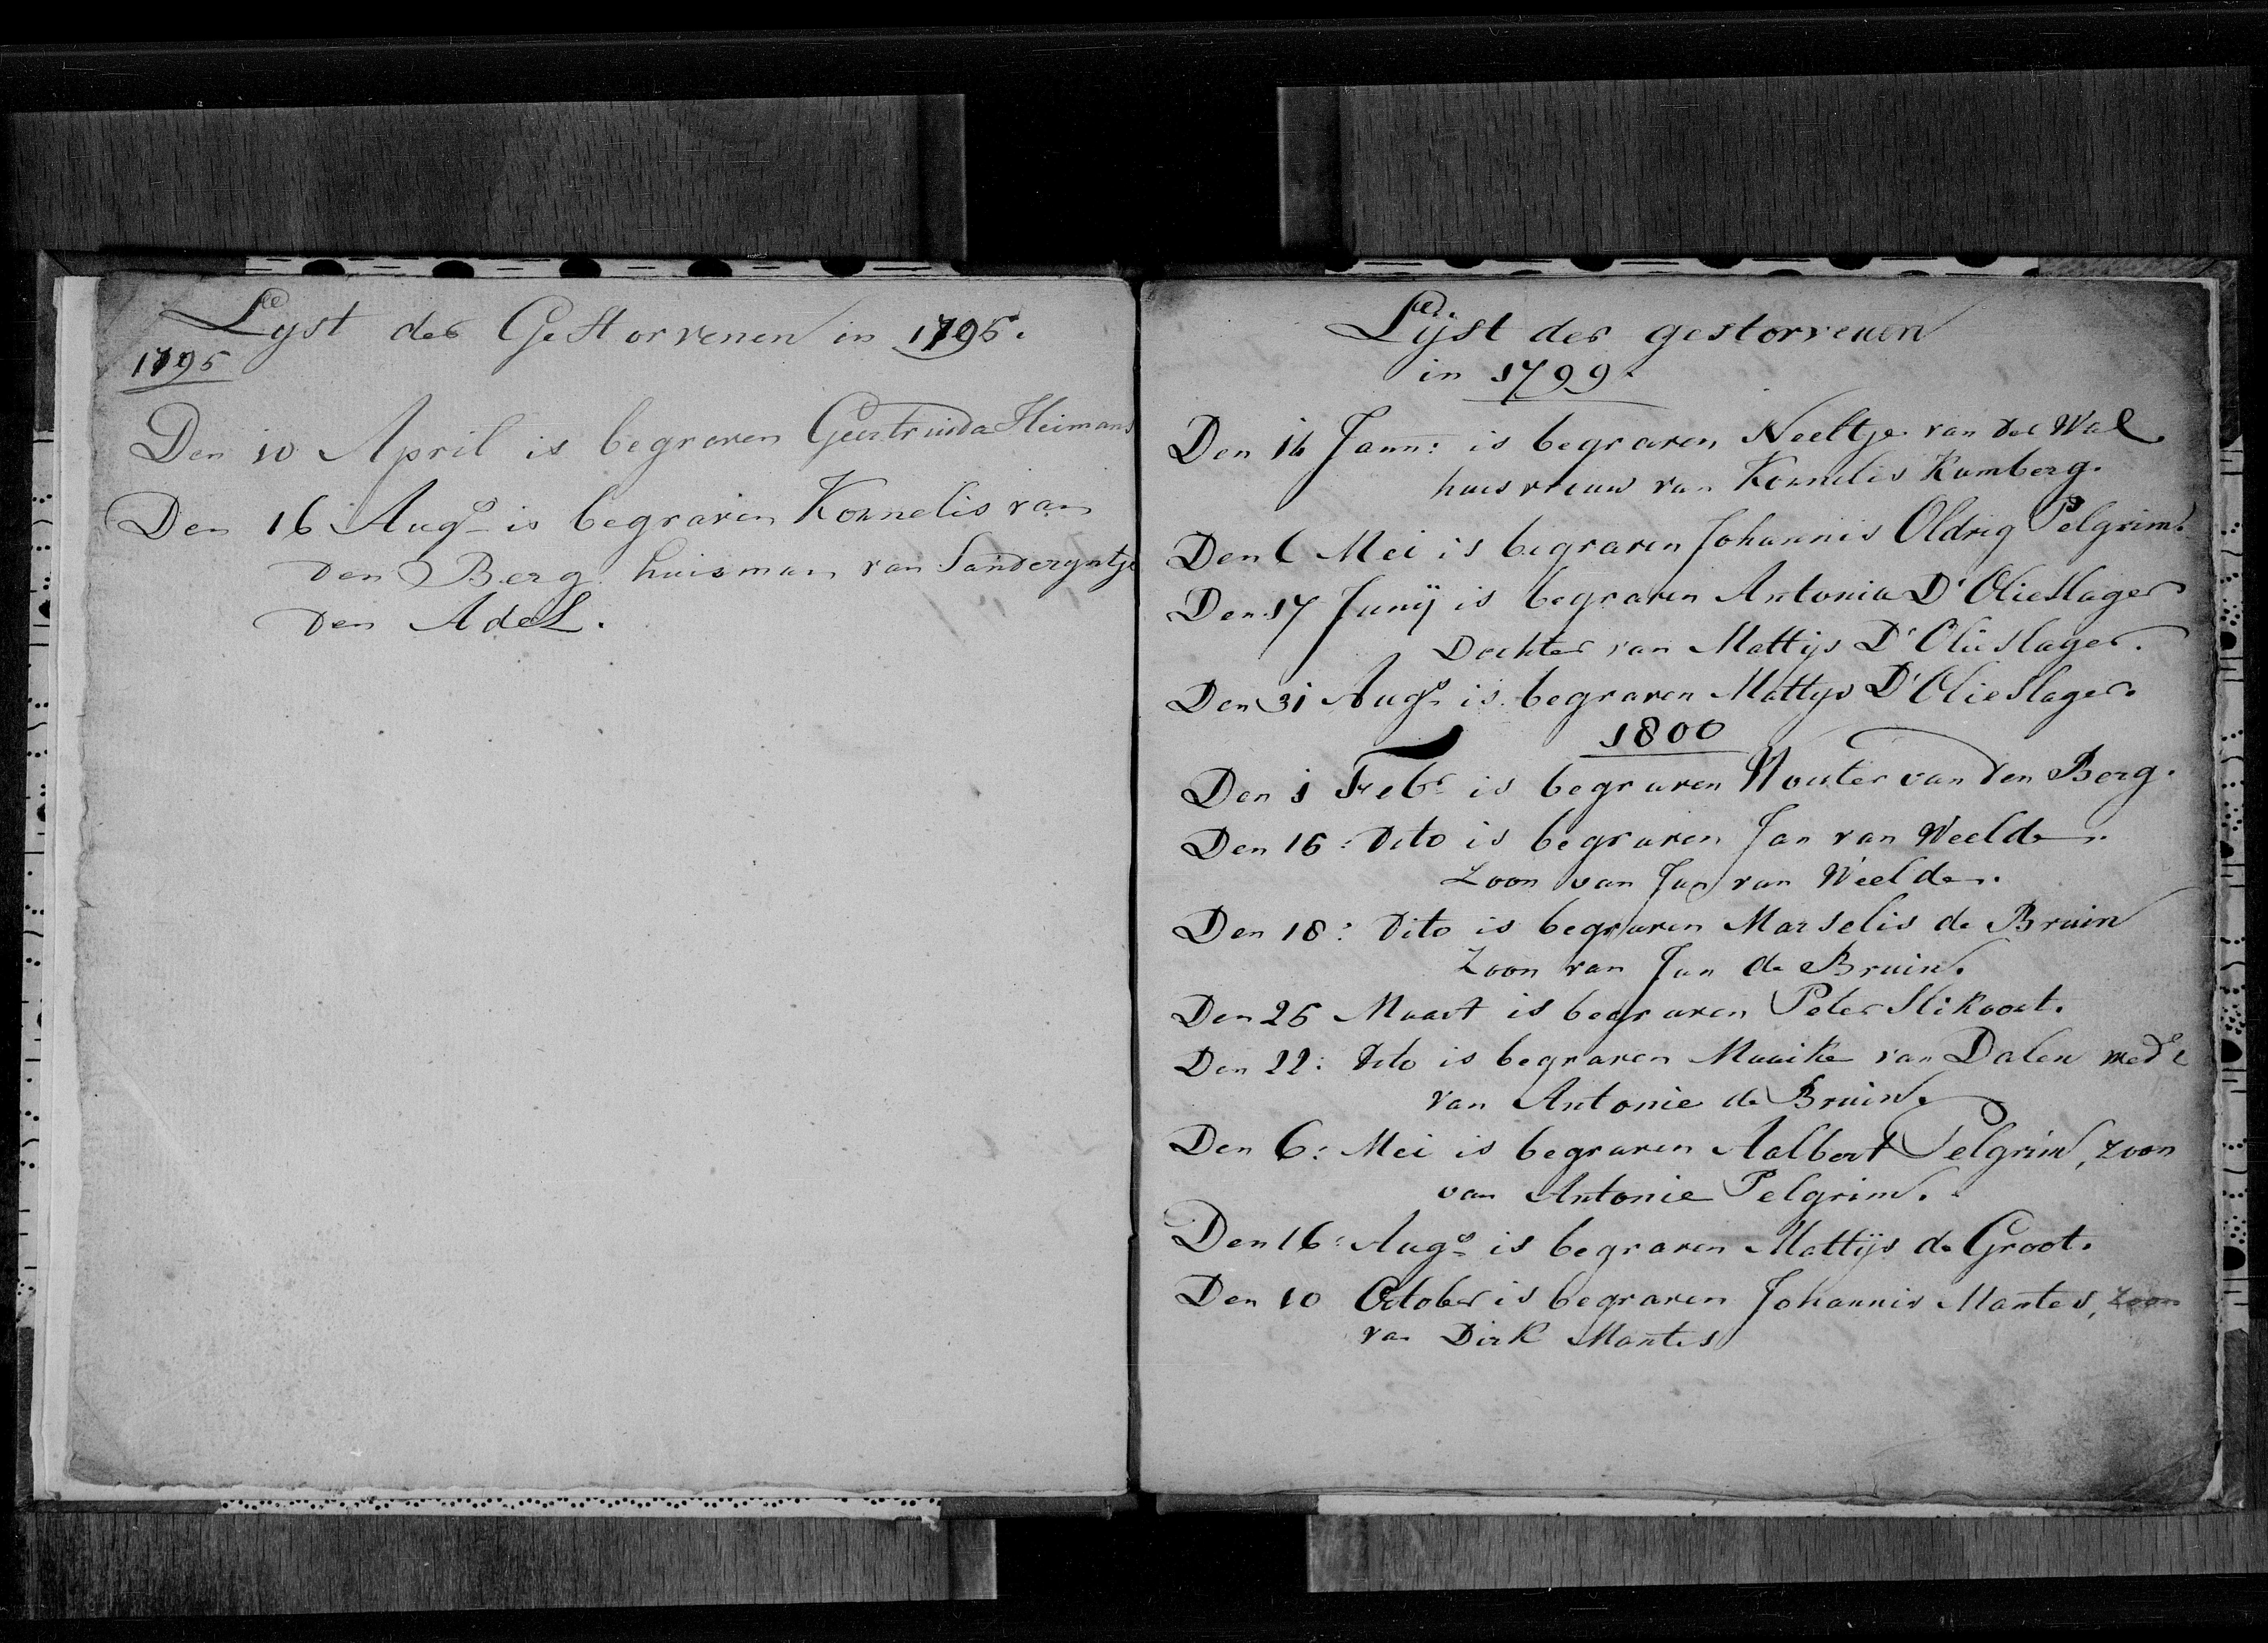 Lyst der Gestorvenen in 1795.
1795
Den 10 April is begraven Geertruida Heimans
Den 16 Augs is begraven Kornelis van
den Berg huisman van Sanderyntje
den Adel.
Lijst der gestorvenen
in 1799.
Den 16 Jann: is begraven Neeltje van der Wal
huisvrouw van Kornelis Kamberg.
Den 6 Mei is begraven Johannis Oldrig Pelgrim.
Den 17 Junij is begraven Antonia D'Olieslager
Dochter van Mattijs D'Olieslager.
Den 31 Augs is begraven Mattys D'Olieslager.
1800
Den 1 Febr is begraven Wouter van den Berg.
Den 16: Dito is begraven Jan van Weelden.
Zoon van Jan van Weelden.
Den 18: Dito is begraven Marselis de Bruin
Zoon van Jan de Bruin.
Den 25 Maart is begraven Peter Slikoort.
Den 22: Dito is begraven Maaike van Dalen wede
van Antonie de Bruin.
Den 6: Mei is begraven Aalbert Pelgrim, zoon
van Antonie Pelgrim.
Den 16: Augs is begraven Mattijs de Groot.
Den 10 October is begraven Johannis Mantes, zoon
van Dirk Mantes